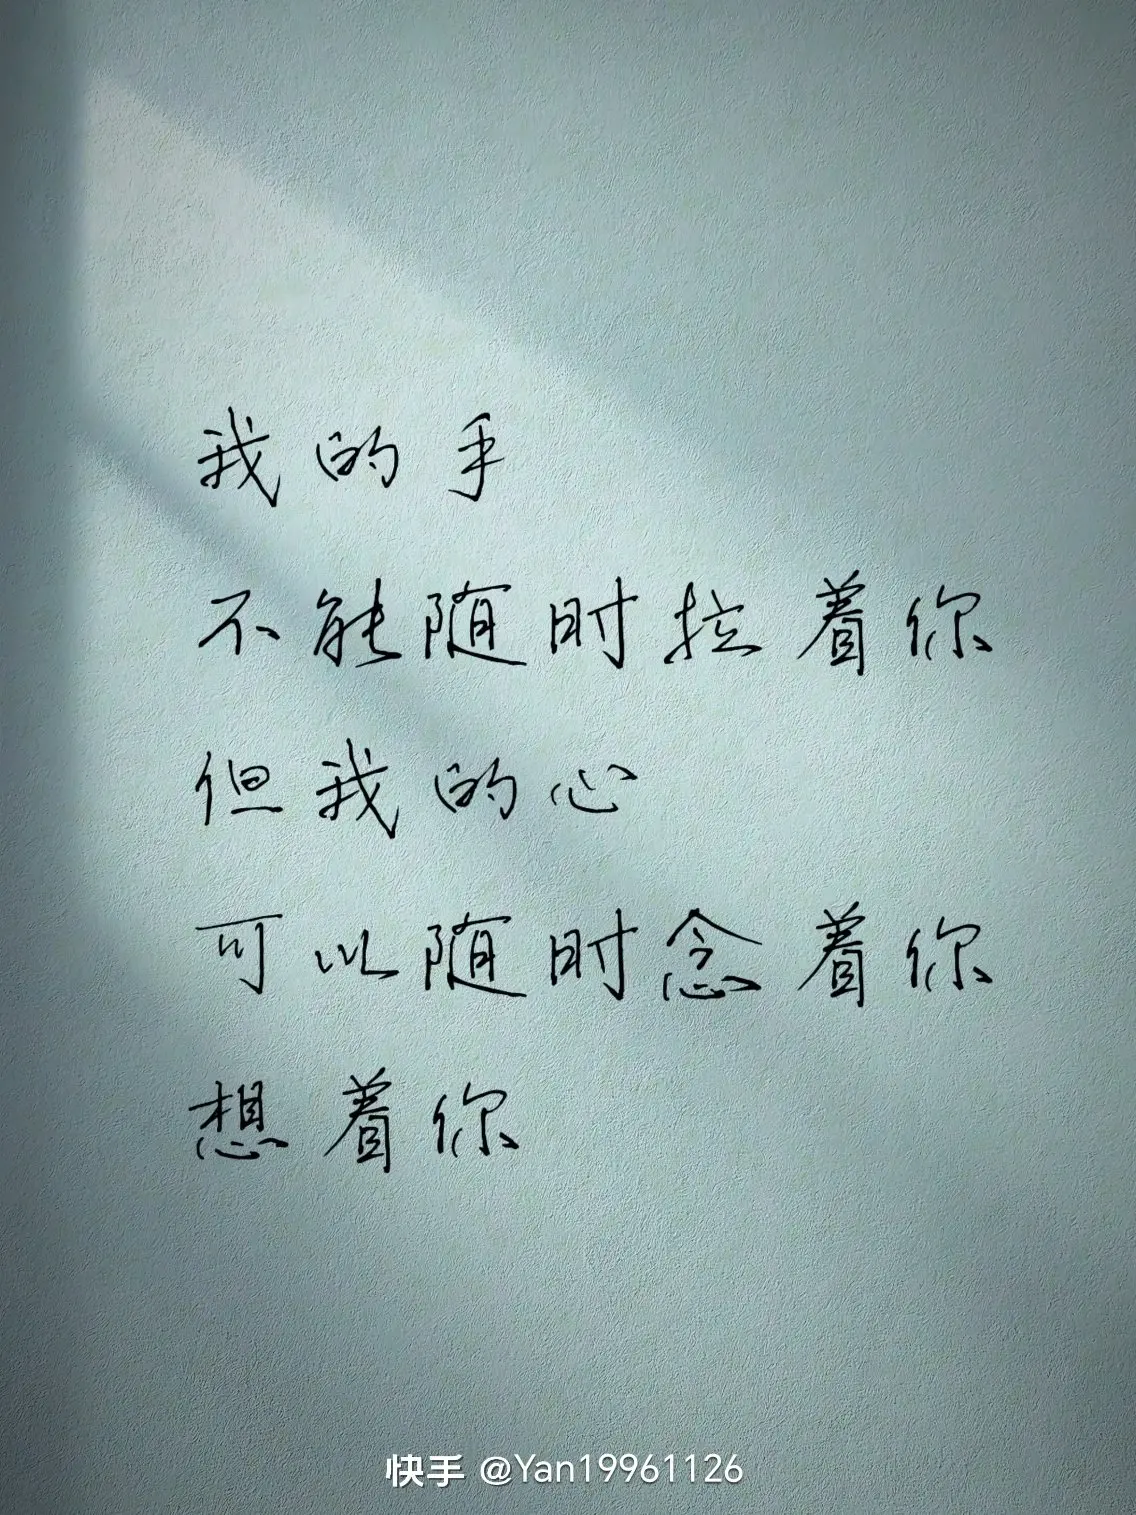 我的手
不能随时拉着你
但我的心
可以随时念着你
想着你
快手 @Yan19961126